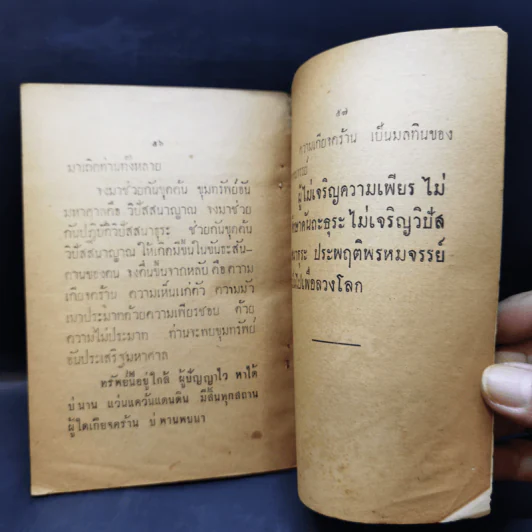 ๕๖
มาเถิดท่านทั้งหลาย
จงมาช่วยกันขุดค้น ขุมทรัพย์อัน
มหาศาลคือ วิปัสสนาญาณ จงมาช่วย
กันปฏิบัติวิปัสสนาธุระ ช่วยกันขุดค้น
วิปัสสนาญาณ ให้เกิดมีขึ้นในขันธะสัน-
ดานของตน จงตื่นขึ้นจากหลับ คือความ
เกียจคร้าน ความเห็นแก่ตัว ความมัว
เมาประมาทด้วยความเพียรชอบ ด้วย
ความไม่ประมาท ท่านจะพบขุมทรัพย์
อันประเสริฐมหาศาล
ทรัพย์นี้อยู่ใกล้ ผู้ปัญญาไว หาได้
บ่นาน แว่นแคว้นแดนดิน มีสิ้นทุกสถาน
ผู้ใดเกียจคร้าน บ่พานพบนา
๕๗
ความเกียจคร้าน เป็นมลทินของ
ผู้ไม่เจริญความเพียร ไม่
คันถะธุระ ไม่เจริญวิปัส
ประพฤติพรหมจรรย์
เพื่อลวงโลก